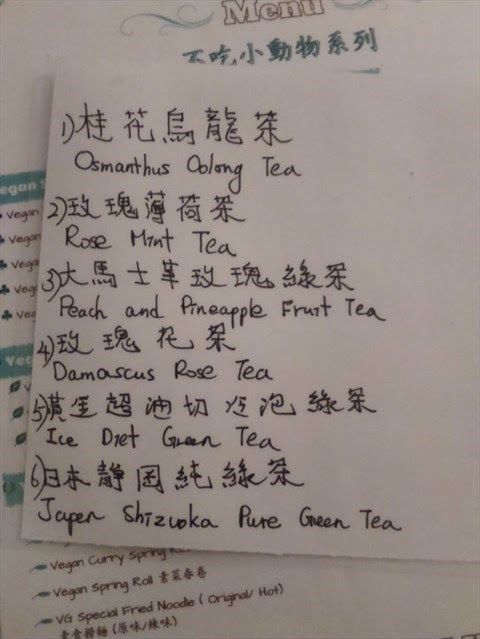 Menu
不吃小動物系列
1)桂花烏龍茶
Osmanthus Oolong Tea
2)玫瑰薄荷茶
Rose Mint Tea
3)大馬士革玫瑰綠茶
Peach and Pineapple Fruit Tea
4)玫瑰花茶
Damascus Rose Tea
5)黃金超油切冷泡綠茶
Ice Diet Green Tea
6)日本靜岡純綠茶
Japen Shizuoka Pure Green Tea
Vegan
Vegan
Vegan
Vegan Curry Spring
Vegan Spring Roll 素菜春卷
VG Special Fried Noodle ( Original/ Hot)
素食撈麵 (原味/辣味)